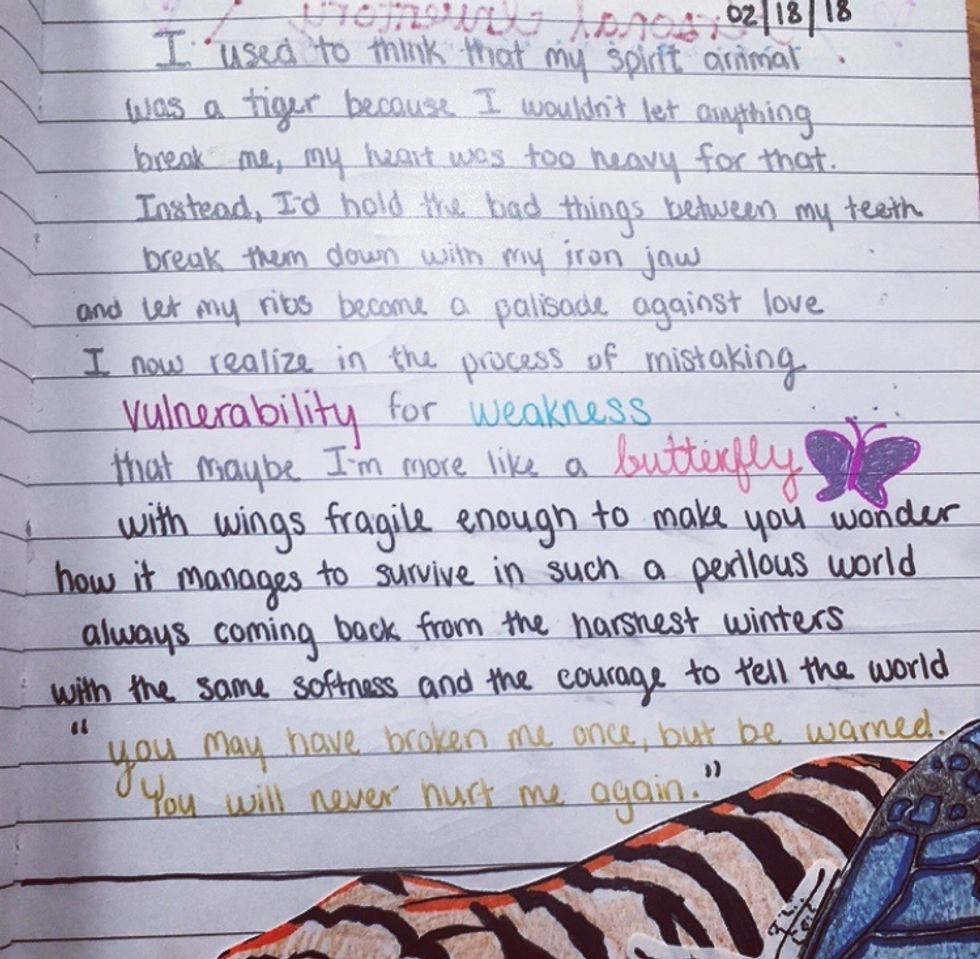 02/18/18
I used to think that my spirit animal
was a tiger because I wouldn't let anything
break me, my heart was too heavy for that.
Instead, I'd hold the bad things between my teeth
break them down with my iron jaw
and let my ribs become a palisade against love
I now realize in the process of mistaking
vulnerability for weakness
that maybe I'm more like a butterfly
with wings fragile enough to make you wonder
how it manages to survive in such a perilous world
always coming back from the harshest winters
with the same softness and the courage to tell the world
"you may have broken me once, but be warned.
You will never hurt me again."